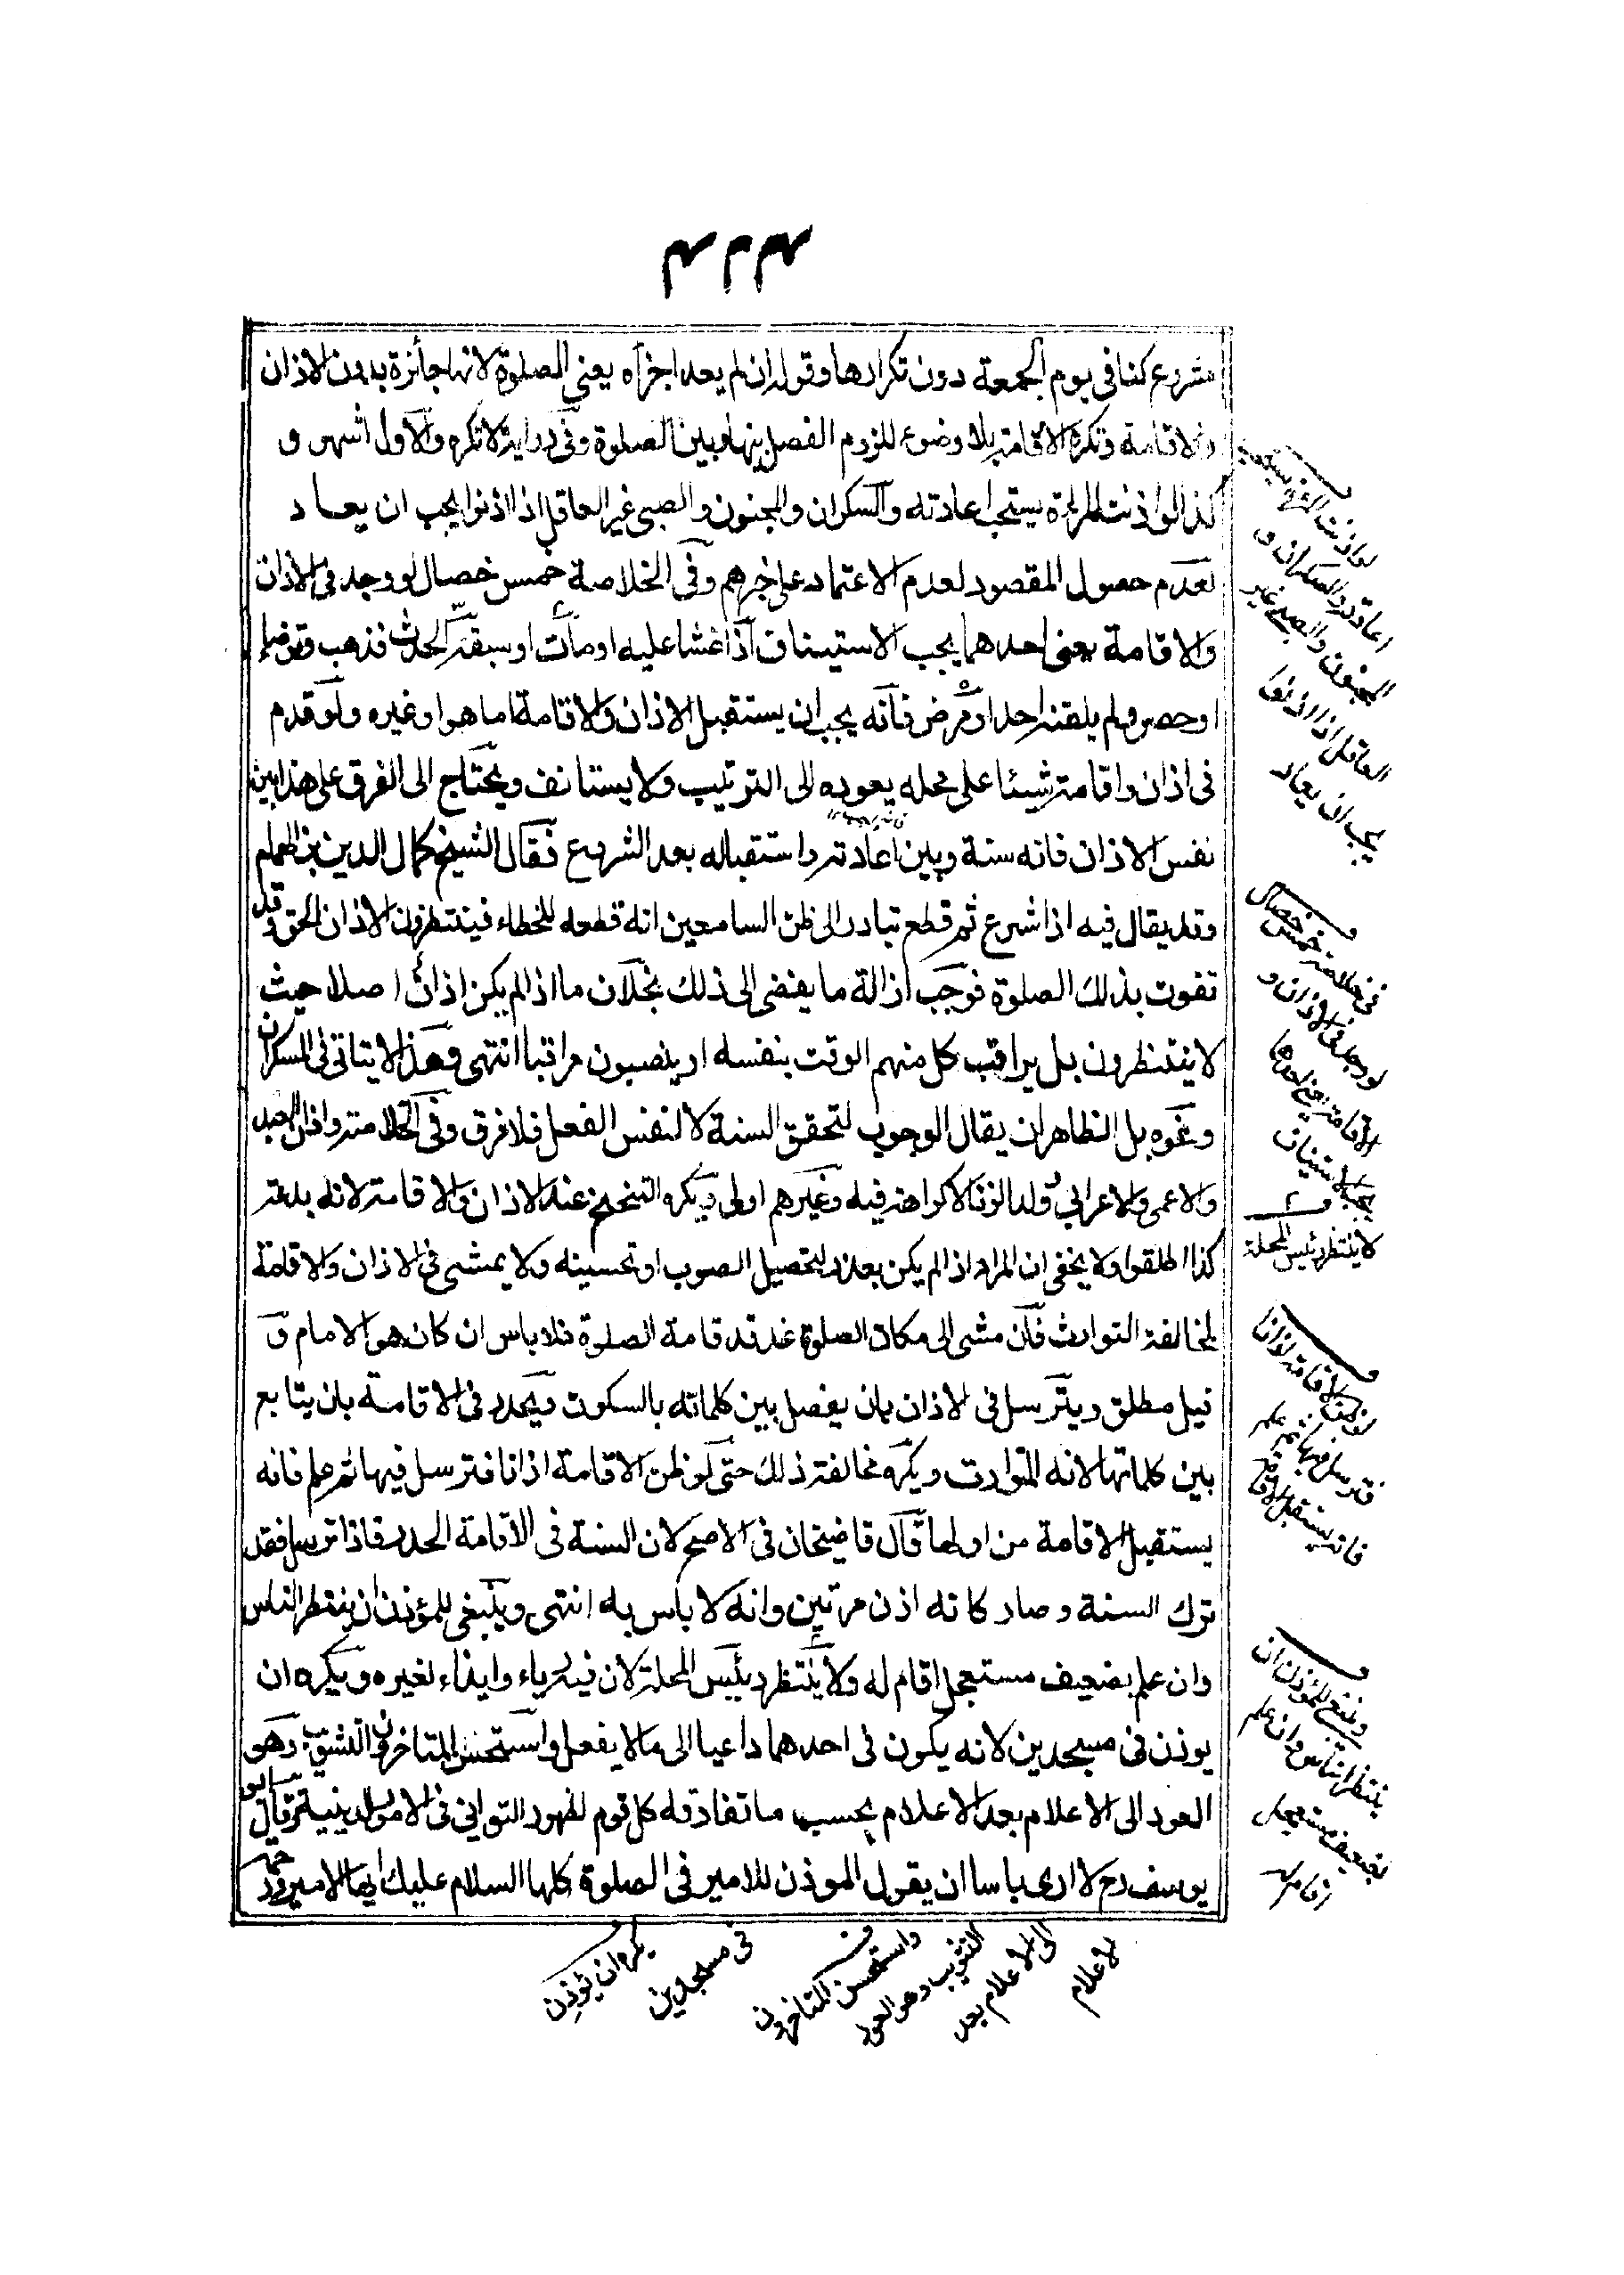 مشروع كما في يوم الجمعة دون تكرارها وقوله ان لم يعد اجزأه يعني الصلوة لانها جائزة بدون الاذان
والاقامة وتكره الاقامة بلا وضوء للزوم الفصل بينها وبين الصلوة وفي رواية لا تكره والاول اشهر و
كذا لو اذنت المرءة يستحب اعادته والسكران والمجنون والصبي غير العاقل اذا اذنوا يجب ان يعاد
لعدم حصول المقصود لعدم الاعتماد على خبرهم وفي الخلاصة خمس خصال لو وجد في الاذان
والاقامة يعني احدهما يجب الاستيناف اذا غشا عليه او مات او سبقه الحدث فذهب وتوضا
او حصر ولم يلقنه احد او مرض فانه يجب ان يستقبل الاذان والاقامة اما هو او غيره ولو قدم
في اذان واقامته شيئا على محله يعوده الى الترتيب ولا يستانف ويحتاج الى الفرق على هذا بين
نفس الاذان فانه سنة وبين اعادته واستقباله بعد الشروع فقال الشيخ كمال الدين بن الهمام
وقد يقال فيه اذا شرع ثم قطع تبادر الى ظن السامعين انه قطعه للخطاء فينتظرون الاذان الحق وقد
تفوت بذلك الصلوة فوجب ازالة ما يفضى الى ذلك بخلاف ما اذا لم يكن اذان اصلا حيث
لا ينتظرون بل يراقب كل منهم الوقت بنفسه او ينصبون مراقبا انتهى وهذا لا يتاتى في السكران
ونحوه بل الظاهر ان يقال الوجوب لتحقق السنة لا لنفس الفعل فلا فرق وفي الخلاصة واذان العبد
والاعمى والاعرابي وولد الزنا لا كراهة فيه وغيرهم اولى ويكره التنحنح عند الاذان والاقامة لانه بدعة
كذا اطلقوا ولا يخفى ان المراد اذا لم يكن بعذر لتحصيل الصوت او تحسينه ولا يمشى في الاذان والاقامة
لمخالفة التوارث فان مشى الى مكان الصلوة عند قد قامة الصلوة فلا باس ان كان هو الامام و
قيل مطلق ويترسل في الاذان بان يفصل بين كلماته بالسكوت ويحدر في الاقامة بان يتابع
بين كلماتها لانه المتوارث ويكره مخالفة ذلك حتى لو ظن الاقامة اذانا فترسل فيها ثم علم فانه
يستقبل الاقامة من اولها قال قاضيخان في الاصح لان السنة في الاقامة الحدر فاذا ترسل فقد
ترك السنة وصار كانه اذن مرتين وانه لا باس به انتهى وينبغي للمؤذن ان ينتظر الناس
وان علم بضعيف مستعجل اقام له ولا ينتظر رئيس المحلة لان فيه رياء وايذاء لغيره ويكره ان
يوذن في مسجدين لانه يكون في احدهما داعيا الى ما لا يفعل واستحسن المتاخرون التثويب وهو
العود الى الاعلام بعد الاعلام بحسب ما تعارفه كل قوم لظهور التواني في الامور الدينية وقال ابو
يوسف رح لا ارى باسا ان يقول الموذن للامير في الصلوة كلها السلام عليك ايها الامير ورحمة
اعادته والسكران و
المجنون والصبي غير
العاقل اذا اذنوا
يجب ان يعاد
في خلاصة خمس خصال
لو وجد في الاذان و
الاقامة يعني احدهما
يجب الاستيناف
لا ينتظر رئيس المحلة
لو ظن الاقامة اذانا
فترسل فيها ثم علم
فانه يستقبل الاقامة
وينبغي للمؤذن ان
ينتظر الناس وان علم
بضعيف مستعجل
اقام له
يكره ان يؤذن
في مسجدين
واستحسن المتاخرون
التثويب وهو العود
الى الاعلام بعد
الاعلام